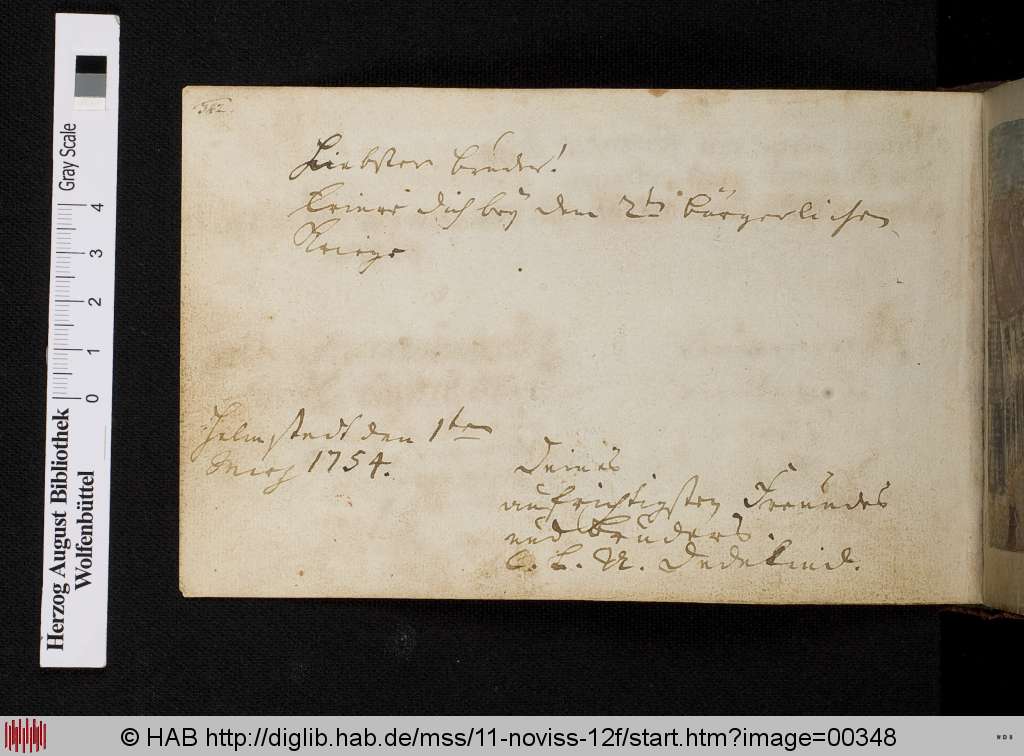 342.
Liebster Bruder!
bey den 2ten bürgerlichen
Kriege
Helmstedt den 1ten
1754.
Deines
aufrichtigsten Freundes
und Bruders.
C. L. U. Dedekind.
Gray Scale
0 1 2 3 4
Herzog August Bibliothek
Wolfenbüttel
© HAB http://diglib.hab.de/mss/11-noviss-12f/start.htm?image=00348